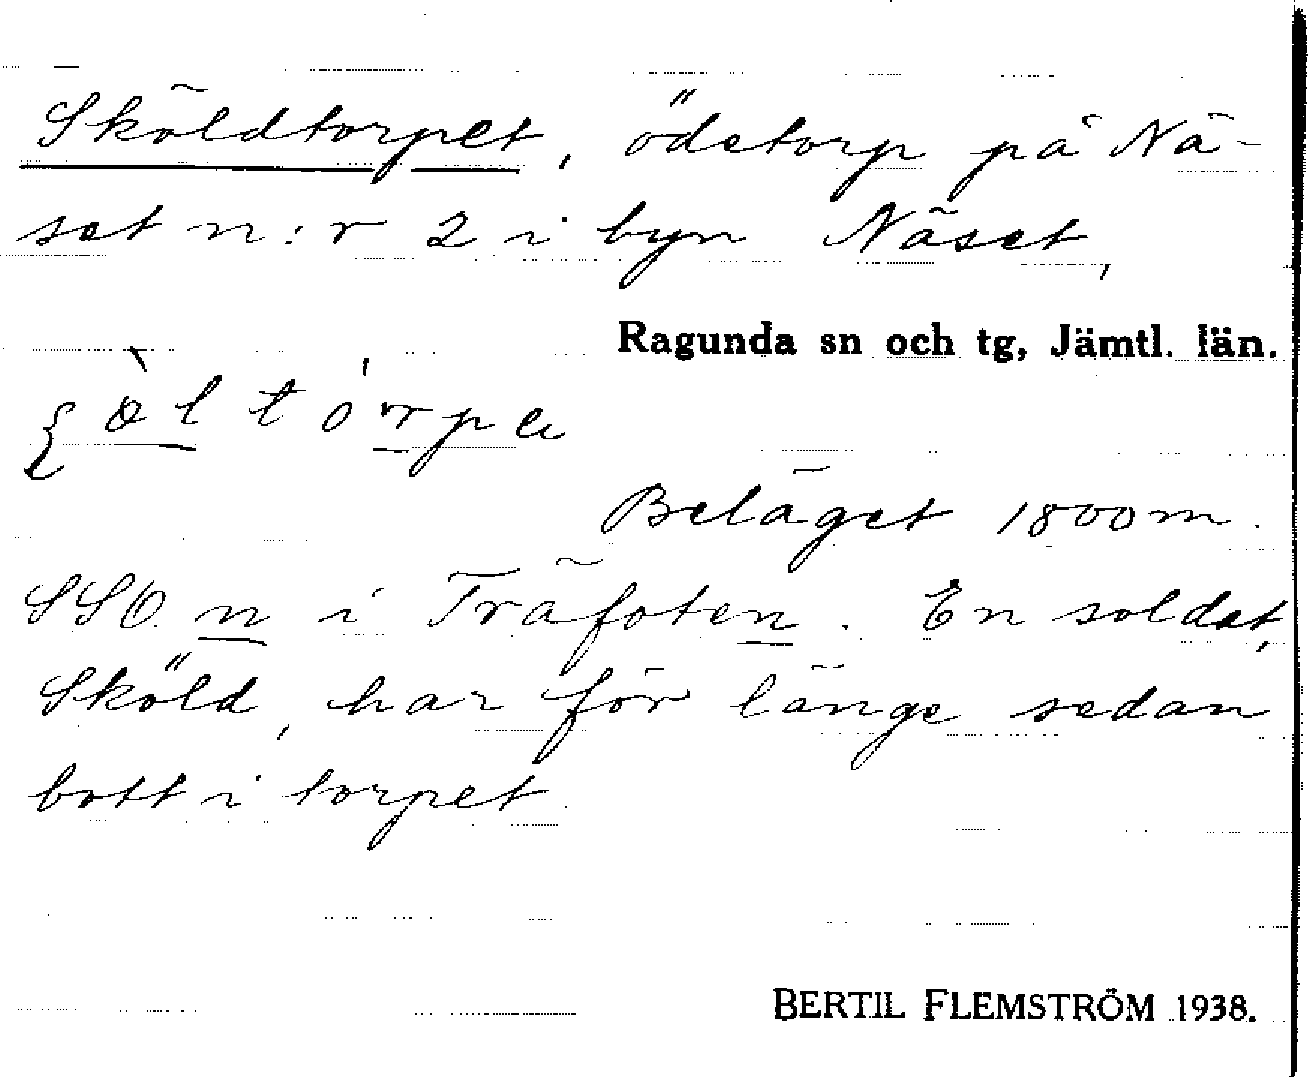 Sköldtorpet, ödetorp på Nä-
set n:r 2 i byn Näset,
Ragunda sn och tg, Jämtl. län.
Beläget 1800 m.
SSO n i Träfoten. En soldat,
Sköld, har för länge sedan
bott i torpet.
BERTIL FLEMSTRÖM 1938.